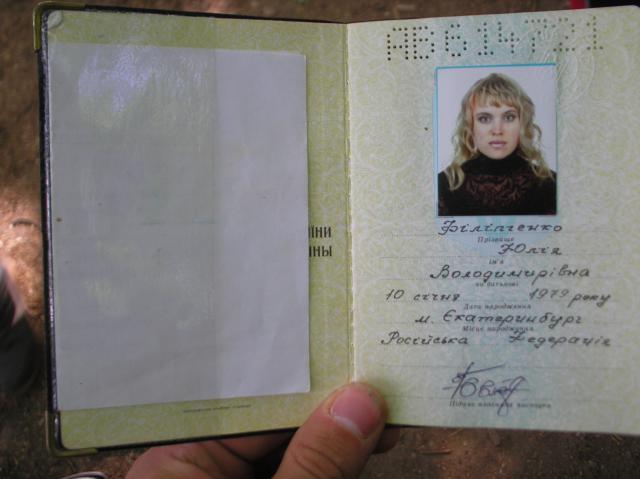 їни
ины
АВ 614721
Філіпченко
Прізвище
Юлія
ім'я
Володимирівна
по батькові
10 січня 1979 року
Дата народження
м. Єкатеринбург
Місце народження
Російська Федерація
Підпис власника паспорта